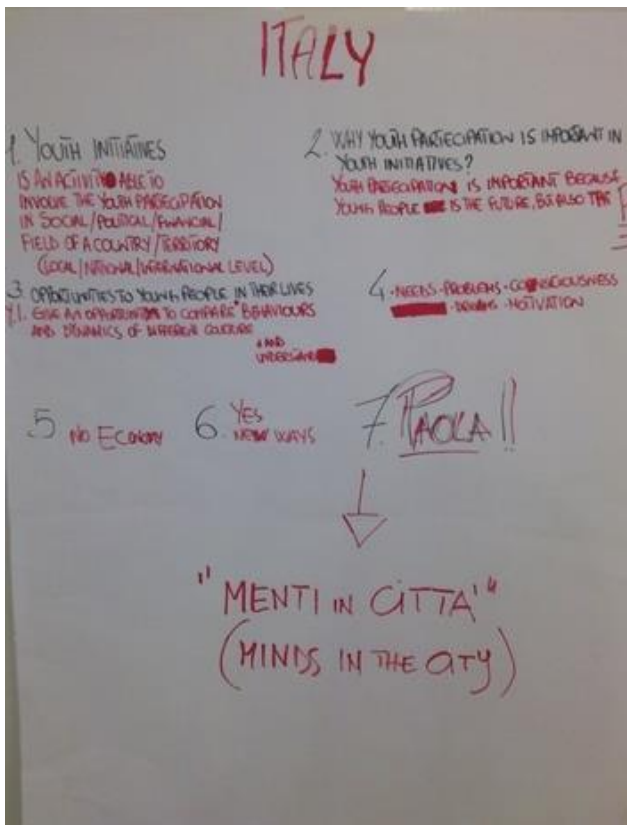 ITALY
1. YOUTH INITIATIVES
IS AN ACTIVITY ABLE TO
INVOLVE THE YOUTH PARTECIPATION
IN SOCIAL/POLITICAL/FINANCIAL/
FIELD OF A COUNTRY/TERRITORY
(LOCAL/NATIONAL/INTERNATIONAL LEVEL)
2. WHY YOUTH PARTECIPATION IS IMPORTANT IN
YOUTH INITIATIVES?
YOUTH PARTECIPATION IS IMPORTANT BECAUSE
YOUNG PEOPLE IS THE FUTURE, BUT ALSO THE
3. OPPORTUNITIES TO YOUNG PEOPLE IN THEIR LIVES
GIVE AN OPPORTUNITY TO COMPARE BEHAVIOURS
AND DYNAMICS OF DIFFERENT CULTURE
AND
UNDERSTAND
4. - NEEDS - PROBLEMS - CONSCIOUSNESS
- DREAMS - MOTIVATION
5 NO ECONOMY
6. YES
NEW WAYS
7. PAOLA!!
"MENTI IN CITTA'"
(MINDS IN THE CITY)